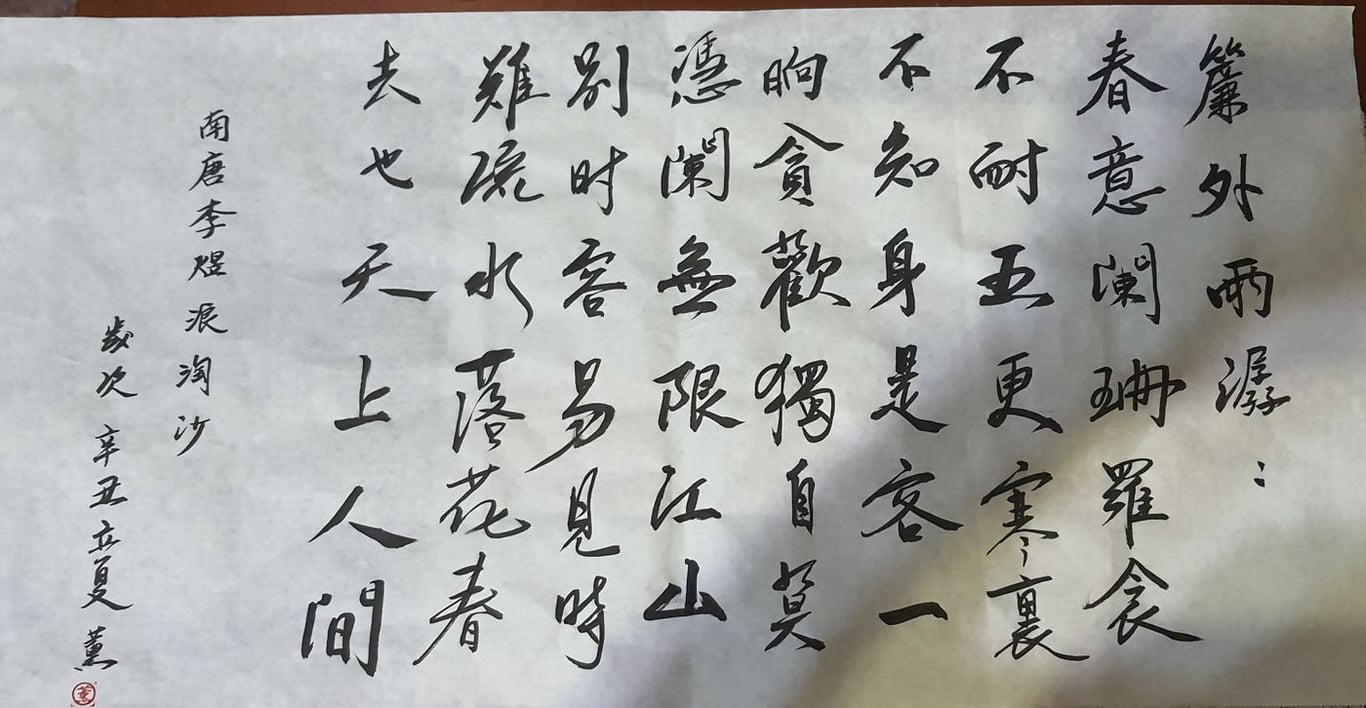 簾外雨潺:
春意闌珊羅衾
不耐五更寒裏
不知身是客一
晌貪歡獨自莫
憑闌無限江山
别时容易見時
難流水落花春
去也天上人間
南唐李煜浪淘沙
歲次辛丑立夏薰